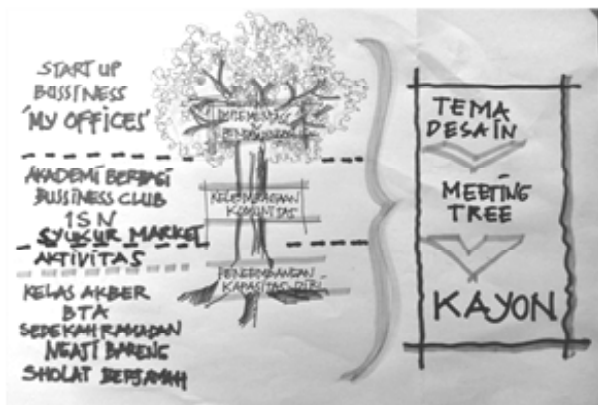 START UP
BUSSINESS
'MY OFFICES'
AKADEMI BERBAGI
BUSSINESS CLUB
ISN
SYUKUR MARKET
AKTIVITAS
KELAS AKBER
BTA
SEDEKAH RAMADAN
NGAJI BARENG
SHOLAT BERJAMAH
KELEMBAGAAN
KOMUNITAS
PENGEMBANGAN
KAPASITAS DIRI
TEMA
DESAIN
MEETING
TREE
KAYON